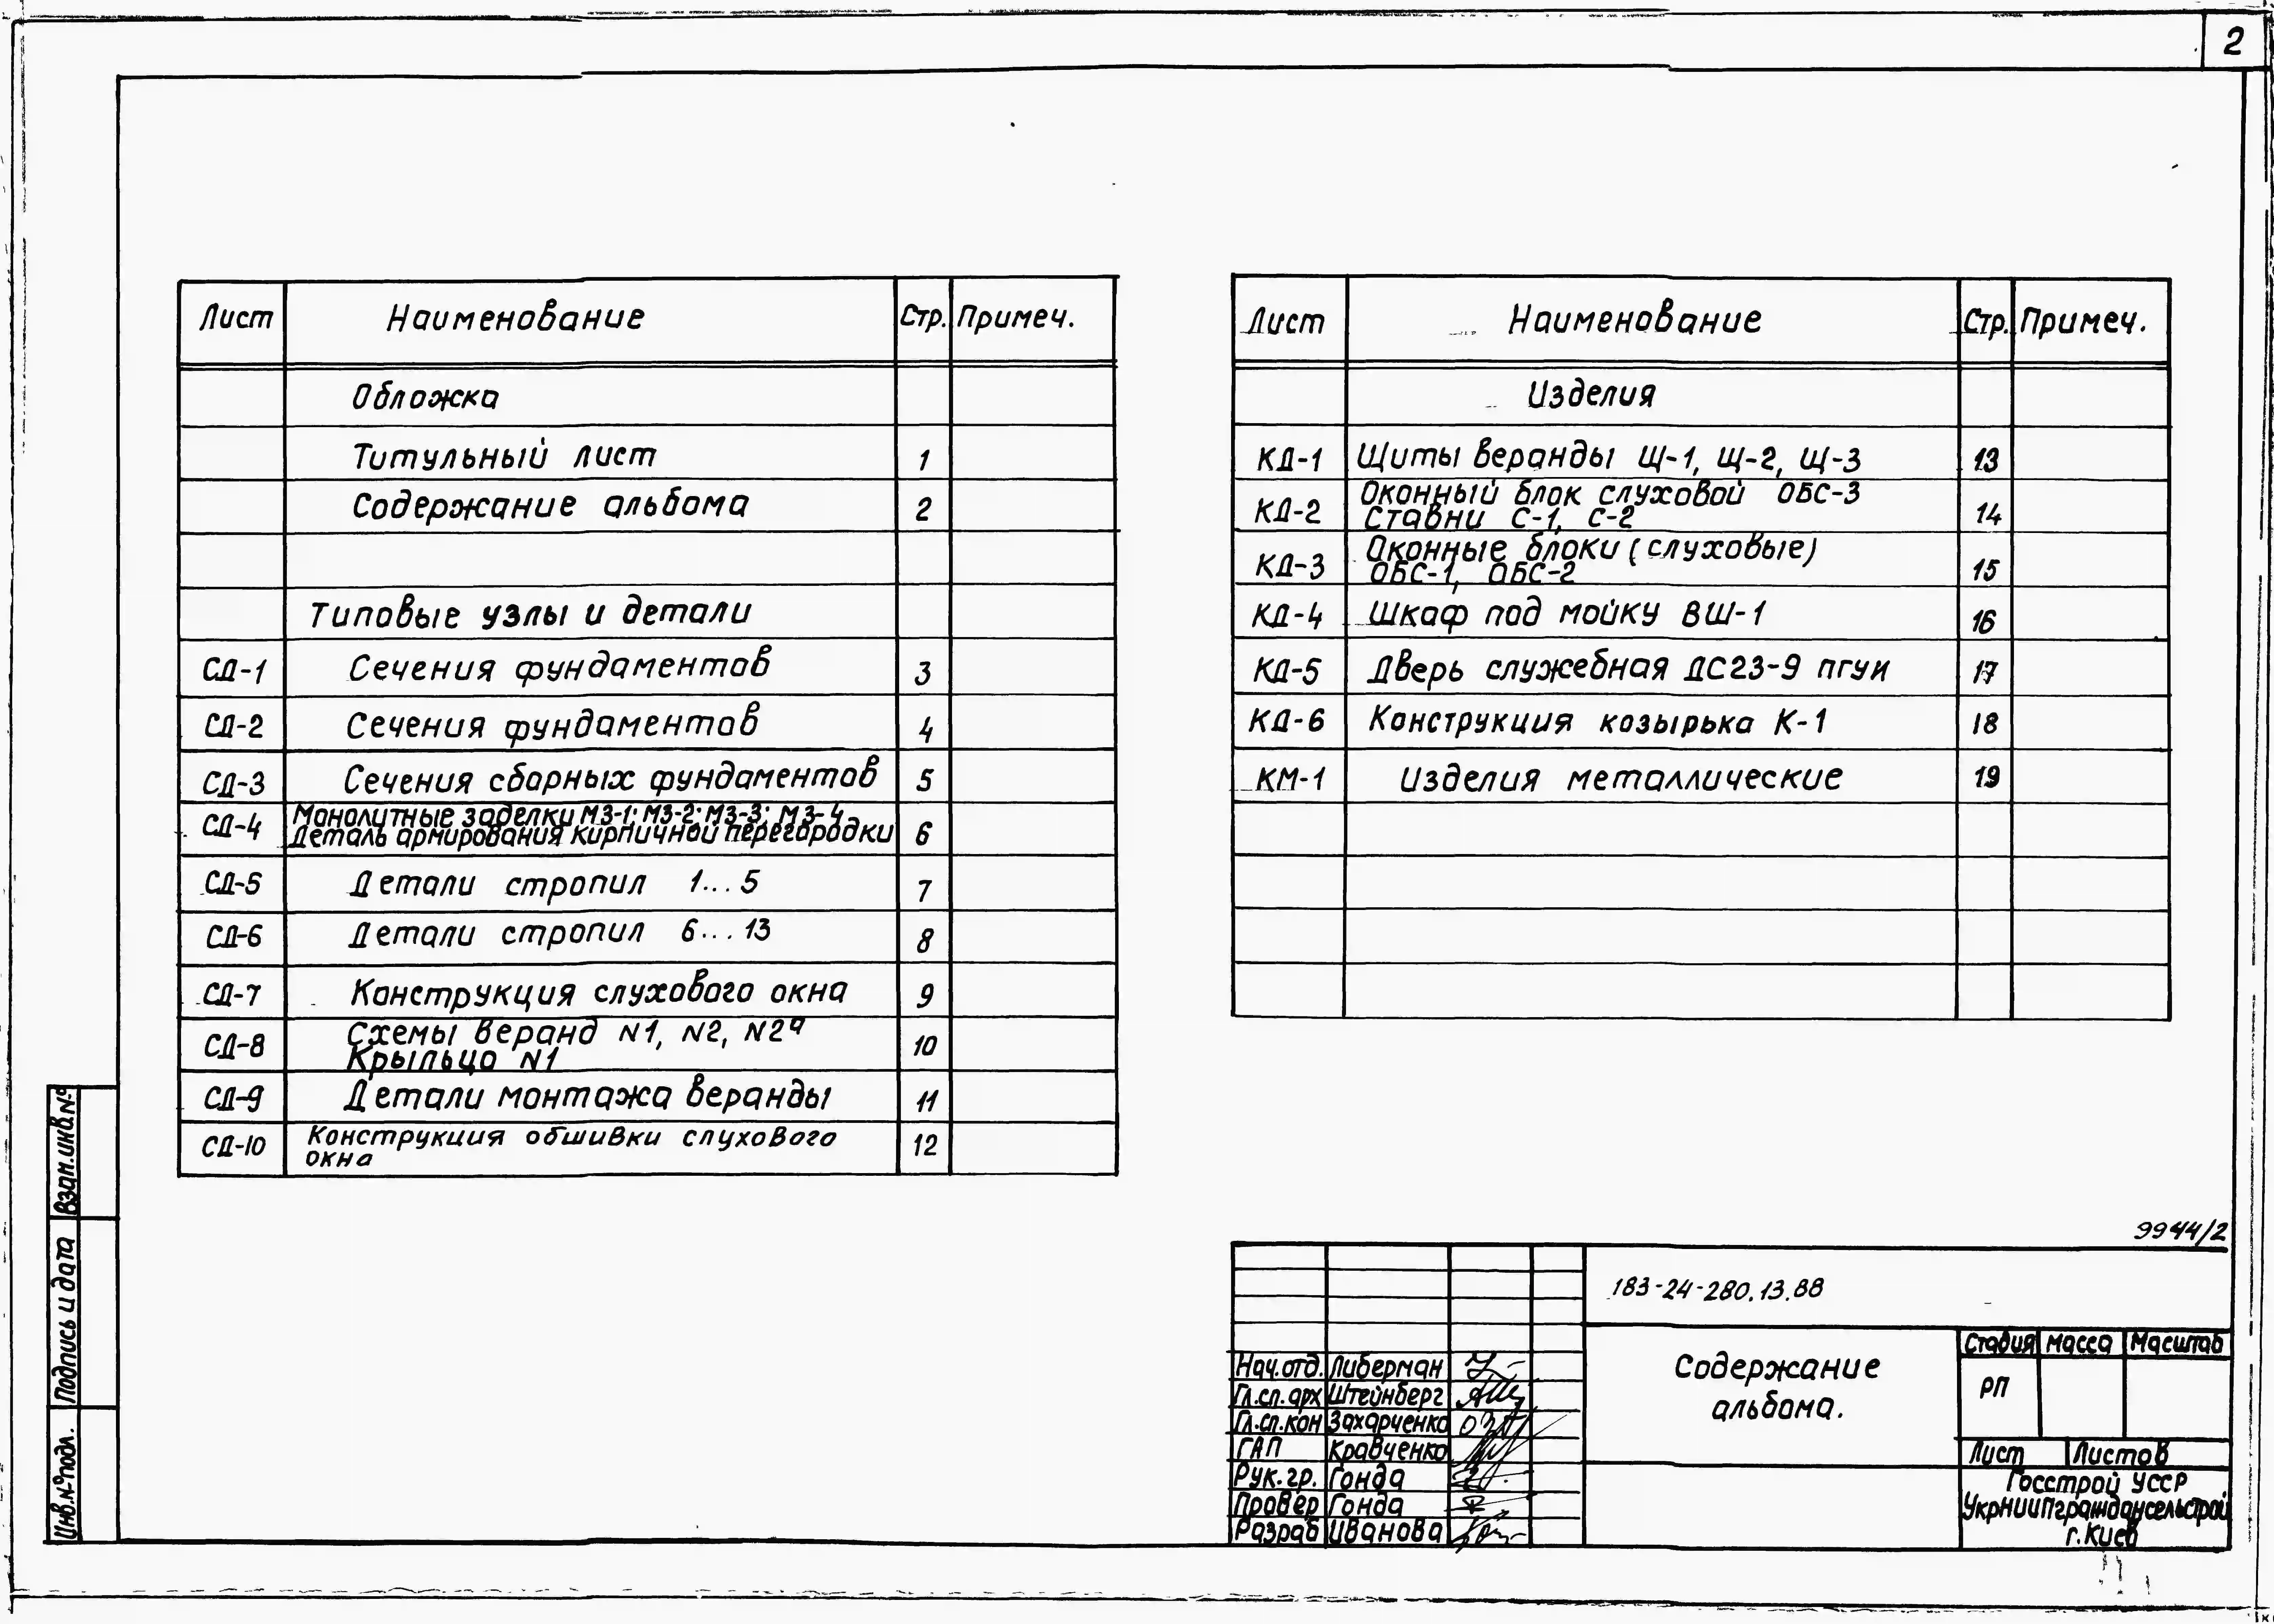 2
Лист Наименование Стр. Примеч.
Обложка
Титульный лист 1
Содержание альбома 2
Типовые узлы и детали
СД-1 Сечения фундаментов 3
СД-2 Сечения фундаментов 4
СД-3 Сечения сборных фундаментов 5
СД-4 Монолитные заделки МЗ-1; МЗ-2; МЗ-3; МЗ-4
Деталь армирования кирпичной перегородки 6
СД-5 Детали стропил 1...5 7
СД-6 Детали стропил 6...13 8
СД-7 Конструкция слухового окна 9
СД-8 Схемы веранд N1, N2, N2а
Крыльцо N1 10
СД-9 Детали монтажа веранды 11
СД-10 Конструкция обшивки слухового
окна 12
Лист Наименование Стр. Примеч.
Изделия
КД-1 Щиты веранды Щ-1, Щ-2, Щ-3 13
КД-2 Оконный блок слуховой ОБС-3
Ставни С-1, С-2 14
КД-3 Оконные блоки (слуховые)
ОБС-1, ОБС-2 15
КД-4 Шкаф под мойку ВШ-1 16
КД-5 Дверь служебная ДС23-9 пгуи 17
КД-6 Конструкция козырька К-1 18
КМ-1 Изделия металлические 19
Взам.инв.№
Подпись и дата
Инв.№подл.
9944/2
183-24-280.13.88
Содержание
альбома.
Стадия Масса Масштаб
РП
Лист Листов
Госстрой УССР
УкрНИИПграждансельстрой
г.Киев
Нач.отд. Либерман
Гл.сп.арх Штейнберг
Гл.сп.кон Захарченко
ГАП Кравченко
Рук.гр. Гонда
Провер Гонда
Разраб Иванова